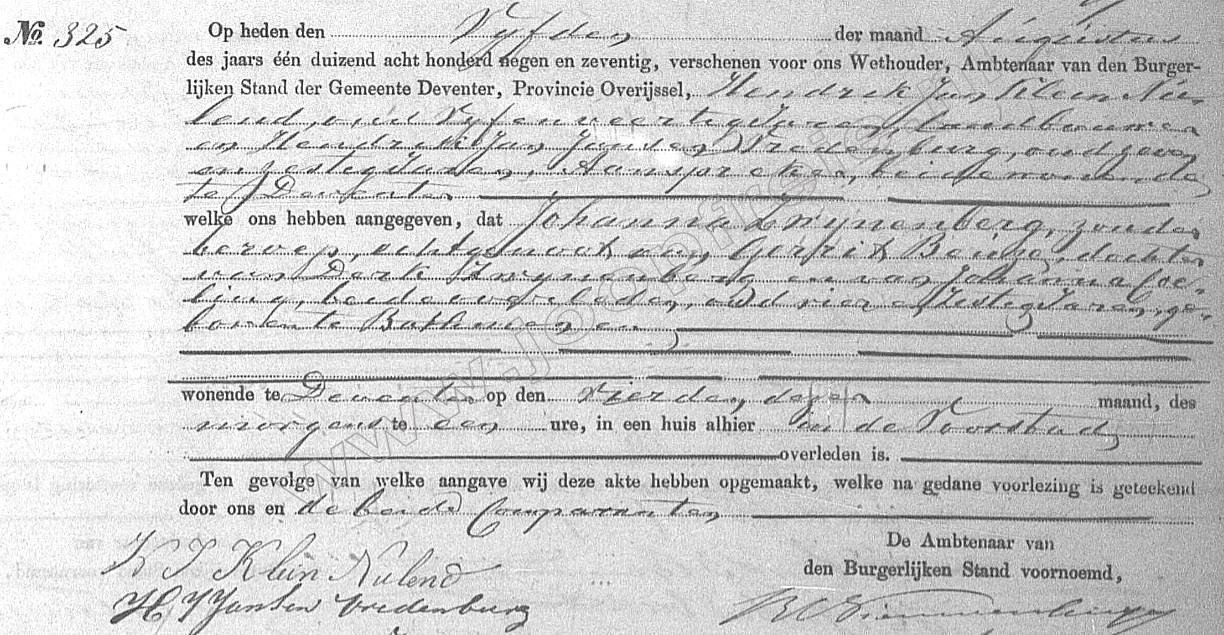 No. 325 Op heden den Vyfden der maand Augustus
des jaars één duizend acht honderd negen en zeventig, verschenen voor ons Wethouder, Ambtenaar van den Burger-
lijken Stand der Gemeente Deventer, Provincie Overijssel, Hendrik Jan Klein Nu-
lend, oud Vyfenveertig Jaren, landbouwer
en Hendrik Jan Jansen Vredenburg, oud zeven
en zestig Jaren, Aanspreker, beide wonende
te Deventer
welke ons hebben aangegeven, dat Johanna Zwynenberg, zonder
beroep, echtgenoot van Gerrit, dochter
van Derk Zwynenberg en van Johanna
beide overleden, oud vier en zestig Jaren, ge-
boren te Bathmen en
wonende te Deventer op den Vierden dezer maand, des
morgens te een ure, in een huis alhier in de Voorstad
overleden is.
Ten gevolge van welke aangave wij deze akte hebben opgemaakt, welke na gedane voorlezing is geteekend
door ons en de beide Comparanten
De Ambtenaar van
den Burgerlijken Stand voornoemd,
H J Klein Nulend
H J Jansen Vredenburg